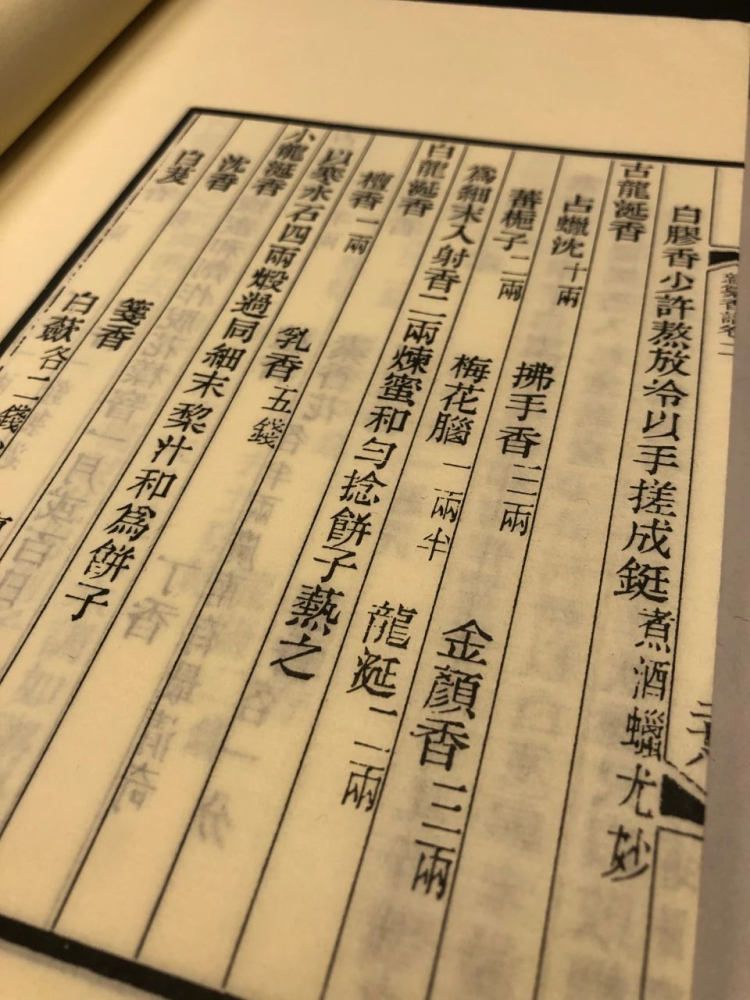 新纂香譜卷二
白膠香少許熬放冷以手搓成鋌煮酒蠟尤妙
古龍涎香
占蠟沈十兩 拂手香三兩 金顏香三兩
蕃梔子二兩 梅花腦一兩半 龍涎二兩
爲細末入射香二兩煉蜜和勻捻餅子爇之
白龍涎香
檀香一兩 乳香五錢
以寒水石四兩煅過同細末棃汁和爲餅子
小龍涎香
沈香 箋香
白芨 白蘞各二錢